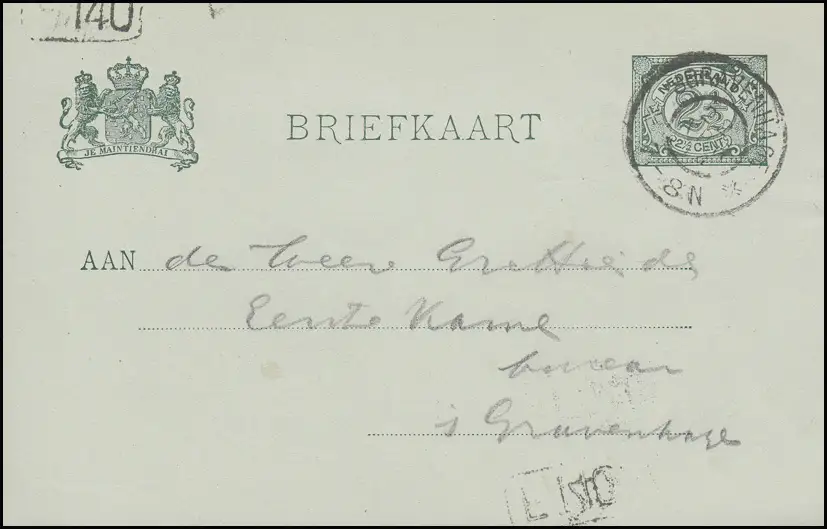 140
JE MAINTIENDRAI
BRIEFKAART
NEDERLAND
2½
2½ CENT
8 N
AAN de Heer Griffie de
Eerste Kame
bureau
s Gravenhage
L 140